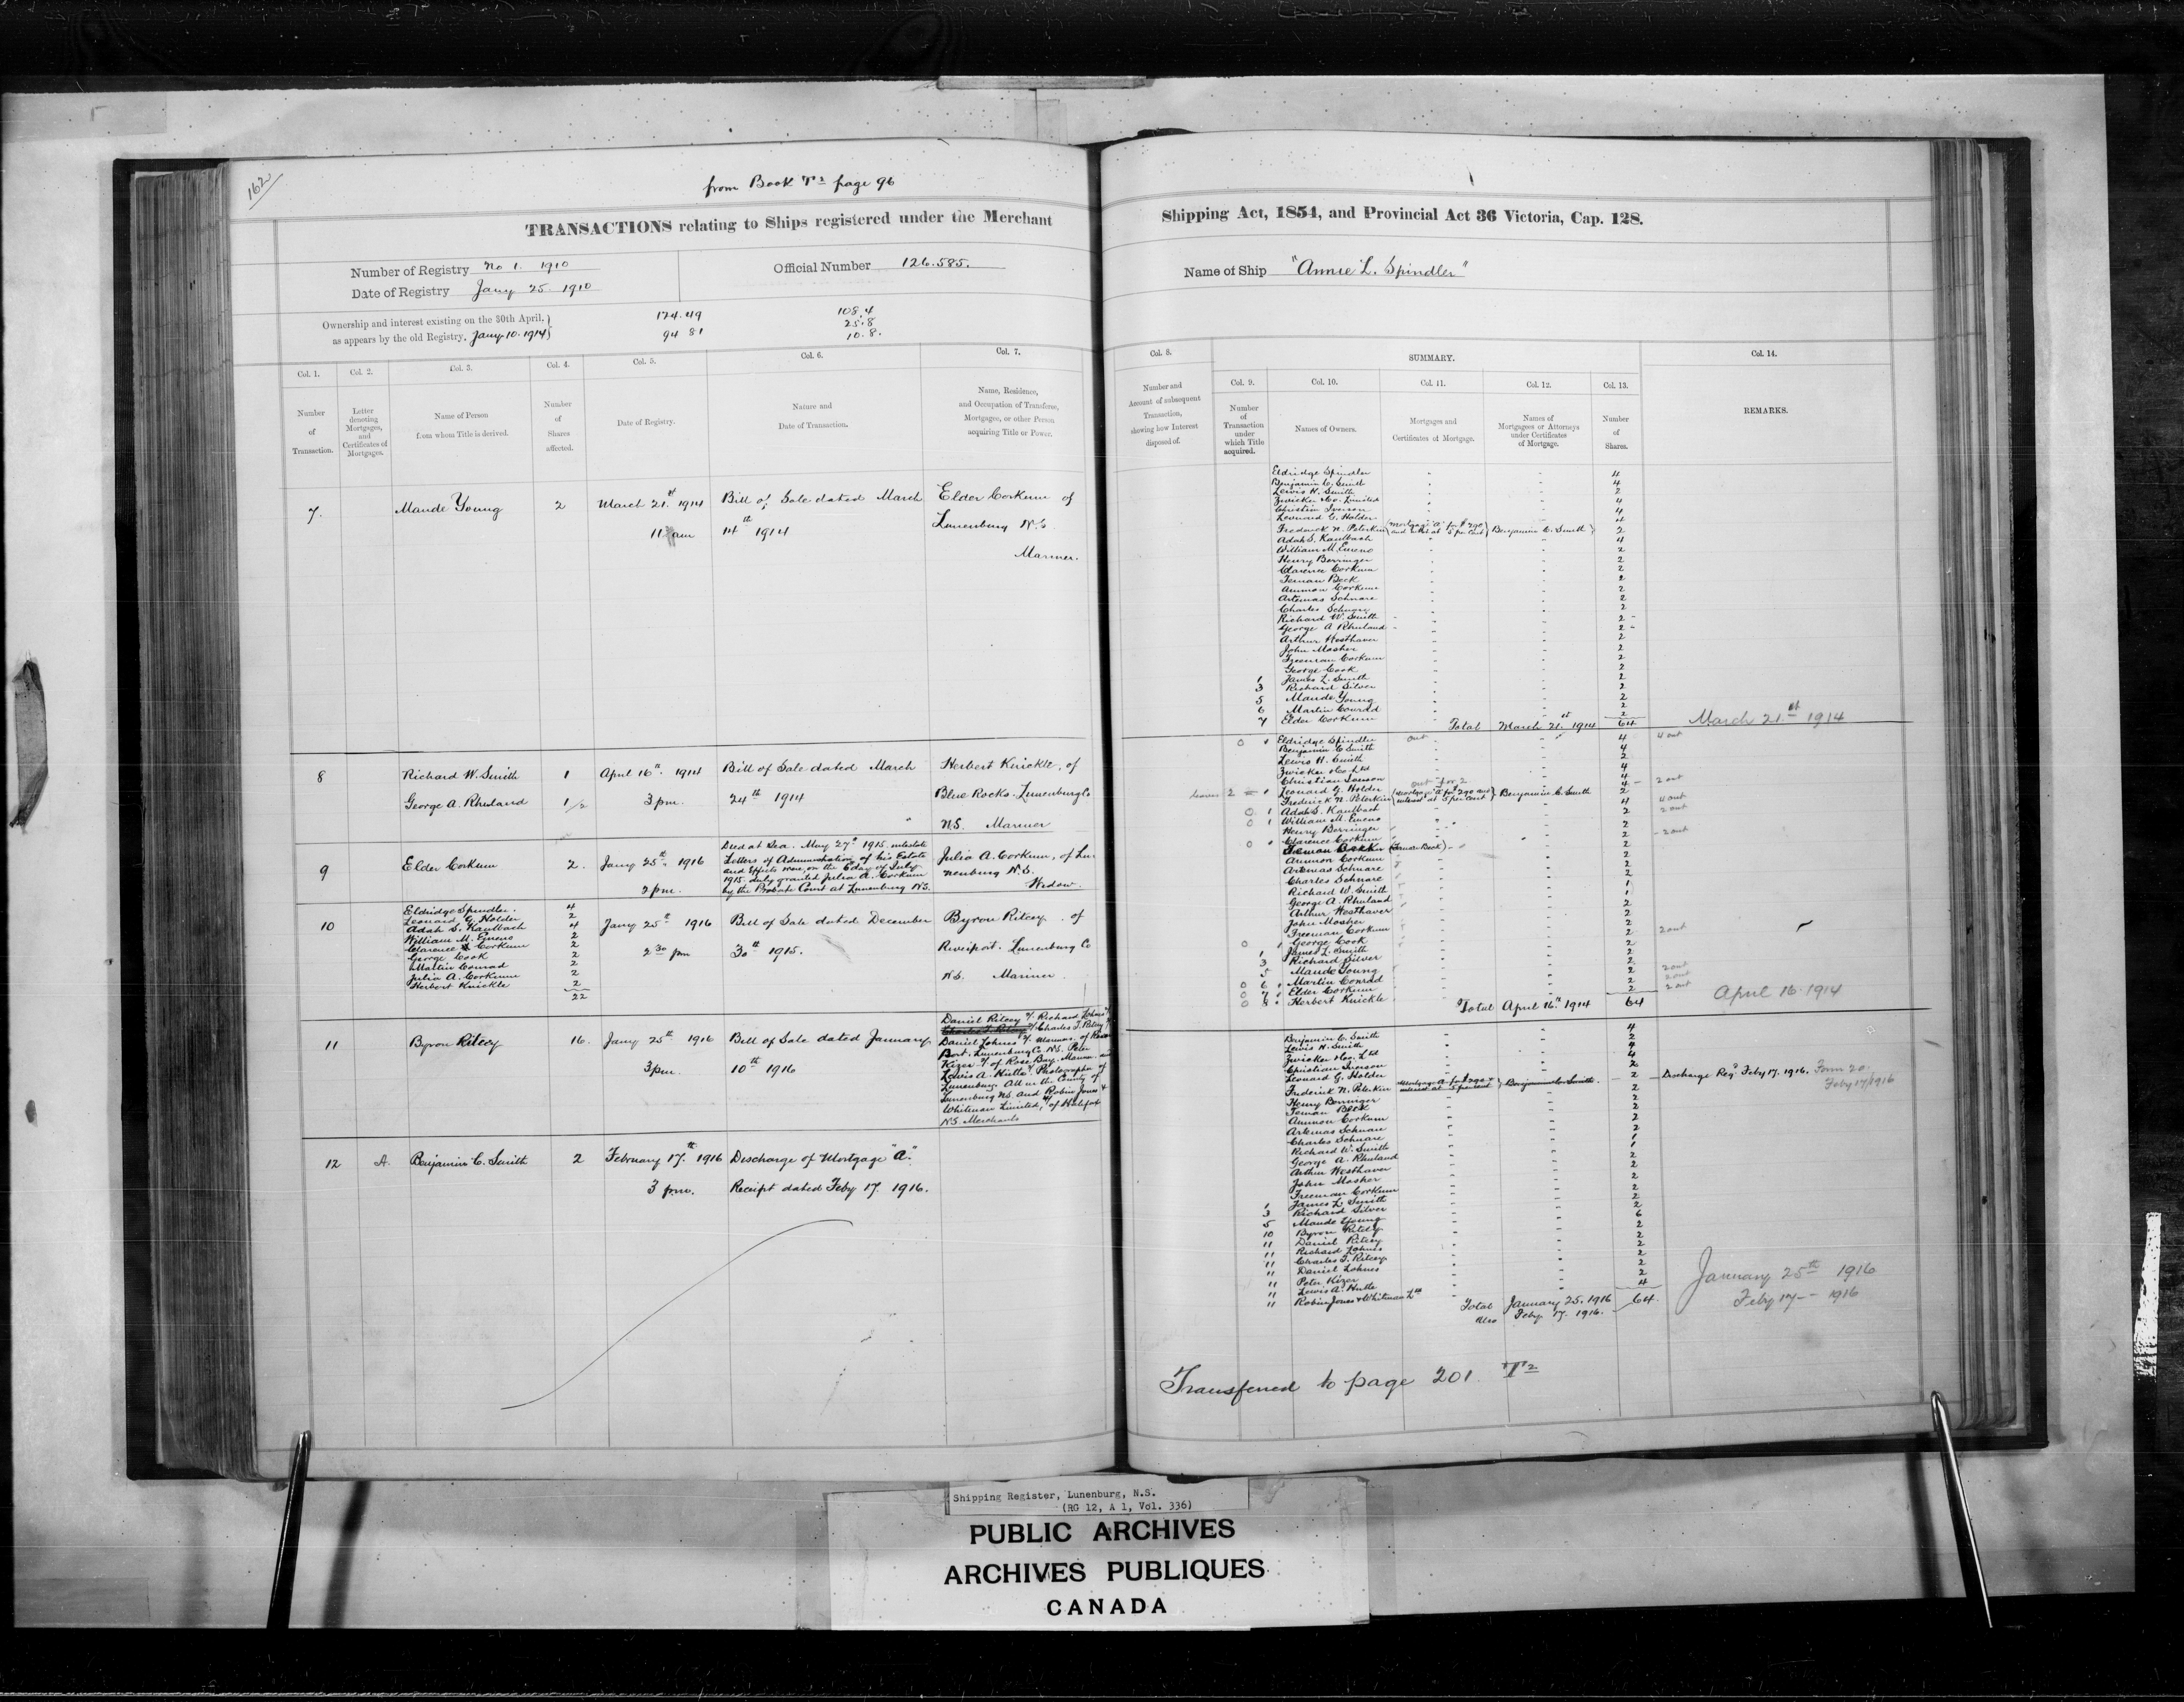 162
from Book T2 page 96
TRANSACTIONS relating to Ships registered under the Merchant
Number of Registry No 1. 1910
Date of Registry Jany 25. 1910
Official Number 126.585.
Ownership and interest existing on the 30th April,
as appears by the old Registry, Jany. 10. 1914
174.49
94 81
108.4
25.8
10.8.
Col. 1.
Col. 2.
Col. 3.
Col. 4.
Col. 5.
Col. 6.
Col. 7.
Number of Transaction.
Letter denoting Mortgages, and Certificates of Mortgages.
Name of Person from whom Title is derived.
Number of Shares affected.
Date of Registry.
Nature and Date of Transaction.
Name, Residence, and Occupation of Transferee, Mortgagee, or other Person acquiring Title or Power.
7. Maude Young 2 March 21st 1914 Bill of Sale dated March Elder Corkum of
11 am 14th 1914 Lunenburg N.S.
Mariner.
8 Richard W. Smith 1 April 16th 1914 Bill of Sale dated March Herbert Knickle, of
George A. Rhuland 1/2 3 pm. 24th 1914 Blue Rocks. Lunenburg Co
N.S. Mariner
9 Elder Corkum 2. Jany 25th 1916
2 pm.
Died at Sea. May 27th 1915. intestate
Letters of Administration of his Estate
and Effects were on the 6 day of July
1915. duly granted Julia A. Corkum
by the Probate Court at Lunenburg N.S.
Julia A. Corkum, of Lu-
nenburg N.S.
Widow.
10
Eldridge Spindler. 4
Leonard G. Holder 2
Adah S. Kaulbach 4
William M. Emeno 2
Clarence Corkum 2
George Cook 2
Martin Conrad 2
Julia A. Corkum 2
Herbert Knickle 2
22
Jany 25th 1916 Bill of Sale dated December Byron Ritcey. of
2 30 pm 30th 1915. Riverport. Lunenburg Co
N.S. Mariner
11 Byron Ritcey 16. Jany 25th 1916 Bill of Sale dated January
3 pm. 10th 1916
Daniel Ritcey 2/. Richard Lohnes 2/
Charles T. Ritcey 2/ Charles T. Ritcey 2/
Daniel Lohnes 2/. Mariners. of River
Port. Lunenburg Co. N.S. Peter
Kizer 2/. of Rose Bay. Mariner and
Lewis A. Hirtle 2/. Photographer of
Lunenburg. All in the County of
Lunenburg N.S. and Robin Jones &
Whitman Limited, 4/ of Halifax
N.S. Merchants
12 A. Benjamin C. Smith 2 February 17th 1916 Discharge of Mortgage "A".
3 p.m. Receipt dated Feby 17. 1916.
Shipping Act, 1854, and Provincial Act 36 Victoria, Cap. 128.
Name of Ship "Annie L. Spindler"
Col. 8.
SUMMARY.
Col. 14.
Col. 9.
Col. 10.
Col. 11.
Col. 12.
Col. 13.
Number and Account of subsequent Transaction, showing how Interest disposed of.
Number of Transaction under which Title acquired.
Names of Owners.
Mortgages and Certificates of Mortgage.
Names of Mortgagees or Attorneys under Certificates of Mortgage.
Number of Shares.
REMARKS.
Eldridge Spindler 4
Benjamin C. Smith 4
Lewis H. Smith 2
Zwicker & Co. Limited 4
Christian Iverson 4
Leonard G. Holder 4
Frederick N. Peterkin Mortgage "A" for $290 and interest at 5 per cent Benjamin C. Smith 2
Adah S. Kaulbach 4
William M. Emeno 2
Henry Berringer 2
Clarence Corkum 2
Teman Beck 2
Ammon Corkum 2
Artemas Schnare 2
Charles Schnare 2
Richard W. Smith 2
George A Rhuland 2
Arthur Westhaver 2
John Mosher 2
Freeman Corkum 2
George Cook 2
1 James L. Smith 2
3 Richard Silver 2
5 Maude Young 2
6 Martin Conrad 2
7 Elder Corkum 2
Total March 21st 1914 64 March 21st 1914
0 Eldridge Spindler out 4 4 out
Benjamin C Smith 4
Lewis H. Smith 2
Zwicker & Co. Ltd 4
Christian Iverson 4
leaves 2 Leonard G. Holder out for 2 4 2 out
Frederick N. Peterkin Mortgage "A" for 290 and interest at 5 per cent Benjamin C. Smith 2
0 Adah S. Kaulbach 4 4 out
0 William M. Emeno 2 2 out
Henry Berringer 2
0 Clarence Corkum 2 2 out
Teman Beck (Teman Beck) 2
Ammon Corkum 2
Artemas Schnare 2
Charles Schnare 2
Richard W. Smith 1
George A. Rhuland 1
Arthur Westhaver 2
John Mosher 2
Freeman Corkum 2
0 George Cook 2 2 out
1 James L. Smith 2
3 Richard Silver 2
5 Maude Young 2
0 6 Martin Conrad 2 2 out
0 7 Elder Corkum 2 2 out
0 8 Herbert Knickle 2 2 out
Total April 16th 1914 64 April 16. 1914
Benjamin C. Smith 4
Lewis H. Smith 2
Zwicker & Co. Ltd 4
Christian Iverson 4
Leonard G. Holder 2
Frederick N. Peterkin Mortgage A for $290 & interest at 5 per cent Benjamin C. Smith 2 Discharge Reg'd Feby 17. 1916. Form 20. Feby 17/1916
Henry Berringer 2
Teman Beck 2
Ammon Corkum 2
Artemas Schnare 2
Charles Schnare 2
Richard W. Smith 1
George A. Rhuland 1
Arthur Westhaver 2
John Mosher 2
Freeman Corkum 2
1 James L. Smith 2
3 Richard Silver 2
5 Maude Young 2
10 Byron Ritcey 6
11 Daniel Ritcey 2
11 Richard Lohnes 2
11 Charles T. Ritcey 2
11 Daniel Lohnes 2
11 Peter Kizer 2
11 Lewis A. Hirtle 2
11 Robin Jones & Whitman Ltd 4
Total January 25. 1916 64. January 25th 1916
Also Feby 17. 1916. Feby 17 - 1916
Transferred to page 201. T2
Shipping Register, Lunenburg, N.S.
(RG 12, A 1, Vol. 336)
PUBLIC ARCHIVES
ARCHIVES PUBLIQUES
CANADA